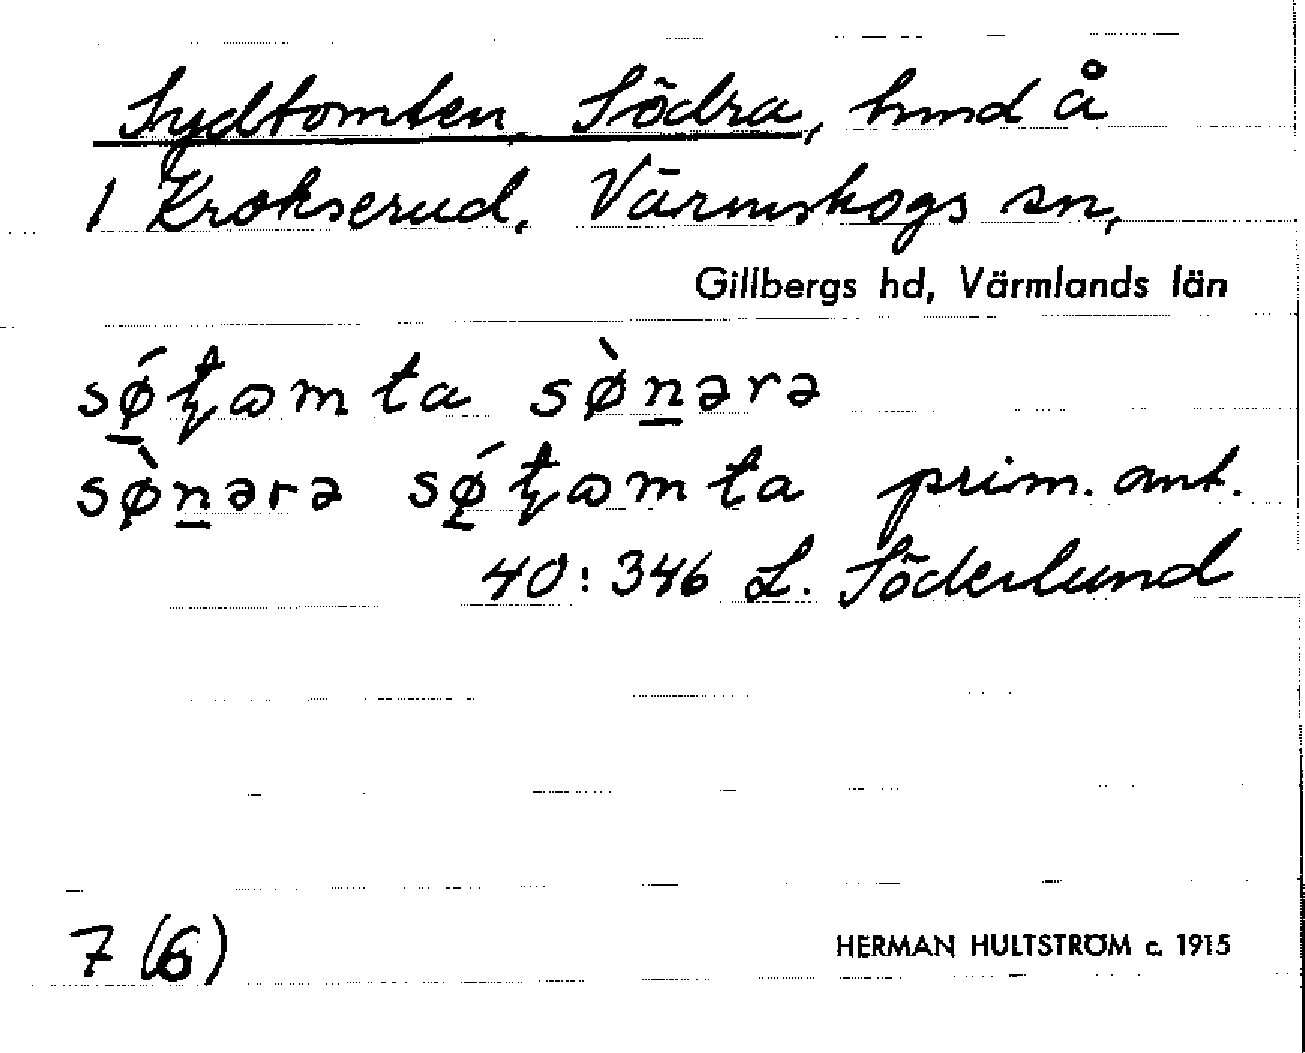 Sydtomten, Södra, hmd å
1 Krokserud, Värmskogs sn,
Gillbergs hd, Värmlands län
sǿ̱ꞎɷmta sø̀n̲ərə
sø̀n̲ərə sǿ̱ꞎɷmta prim. ant.
40:346 L. Söderlund
7 (6)
HERMAN HULTSTRÖM c. 1915